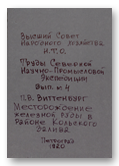 Высший Совет
Народного хозяйства
Н.Т.О.
Труды Северной
Научно-Промысловой
Экспедиции
Вып. № 4
П.В. Виттенбург
Месторождение
железной руды в
районе Кольского
залива
Петроград
1920